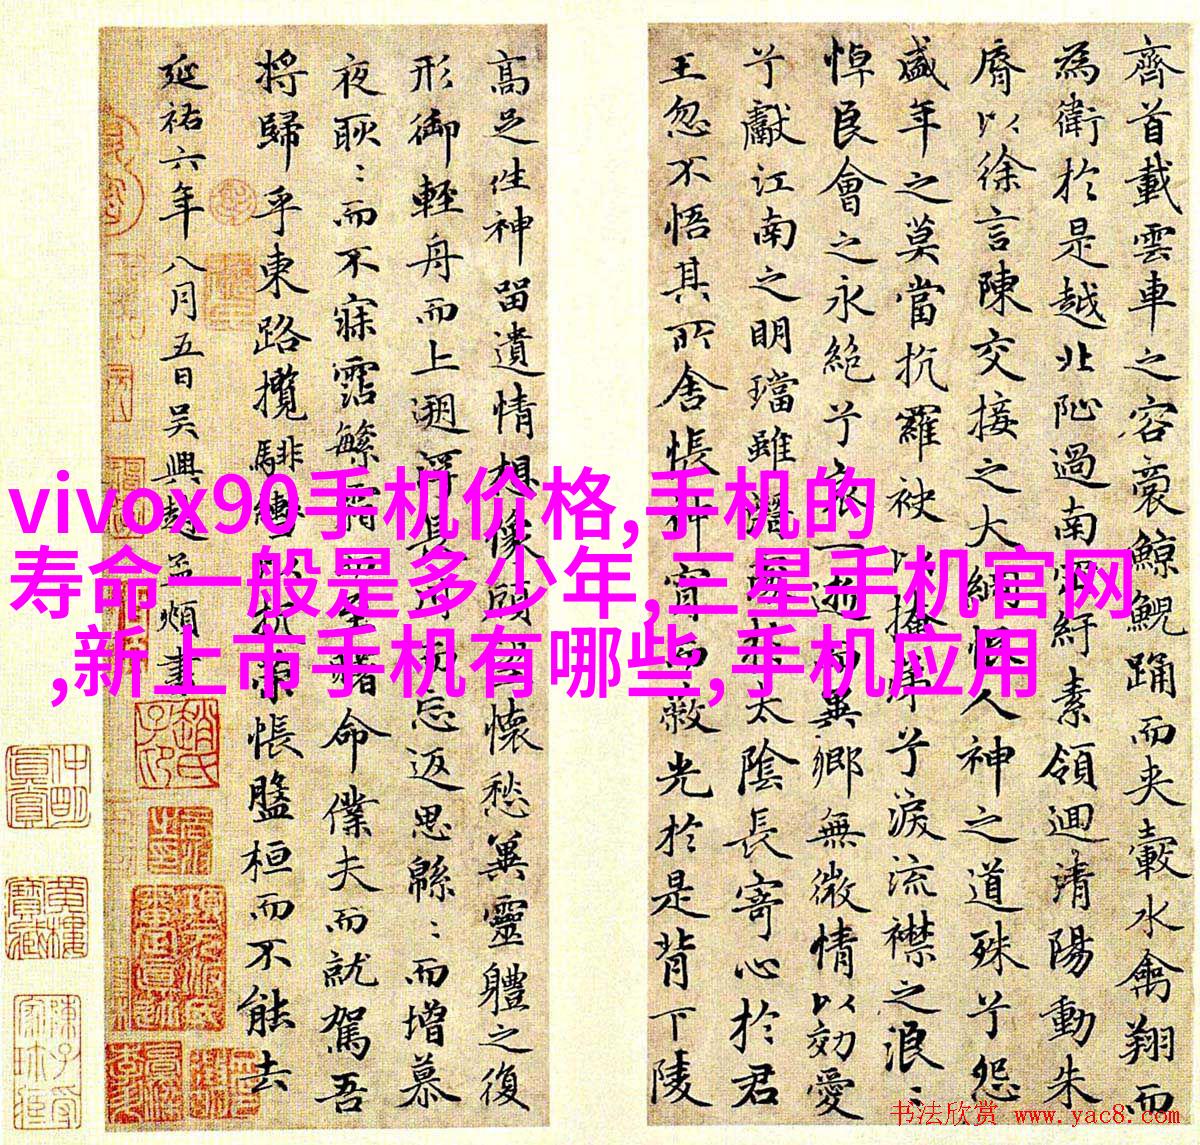 齊首載雲車之容裔鯨鯢踊而夾轂水禽翔而
為衛於是越北沚過南岡紆素領迴清陽動朱
脣以徐言陳交接之大綱恨人神之道殊兮怨
盛年之莫當抗羅袂以掩涕兮淚流襟之浪〻
悼良會之永絕兮哀一逝而異鄉無微情以効愛
兮獻江南之明璫雖潛處於太陰長寄心於君
王忽不悟其所舍悵神宵而蔽光於是背下陵
高足往神留遺情想像顧望懷愁兾靈體之復
形御輕舟而上遡浮長川而忘返思緜〻而增慕
夜耿〻而不寐霑繁霜而至曙命僕夫而就駕吾
將歸乎東路攬騑轡以抗策悵盤桓而不能去
延祐六年八月五日吳興趙孟頫書
vivox90手机价格,手机的
寿命一般是多少年,三星手机官网
,新上市手机有哪些,手机应用
书法欣赏 www.yac8.com